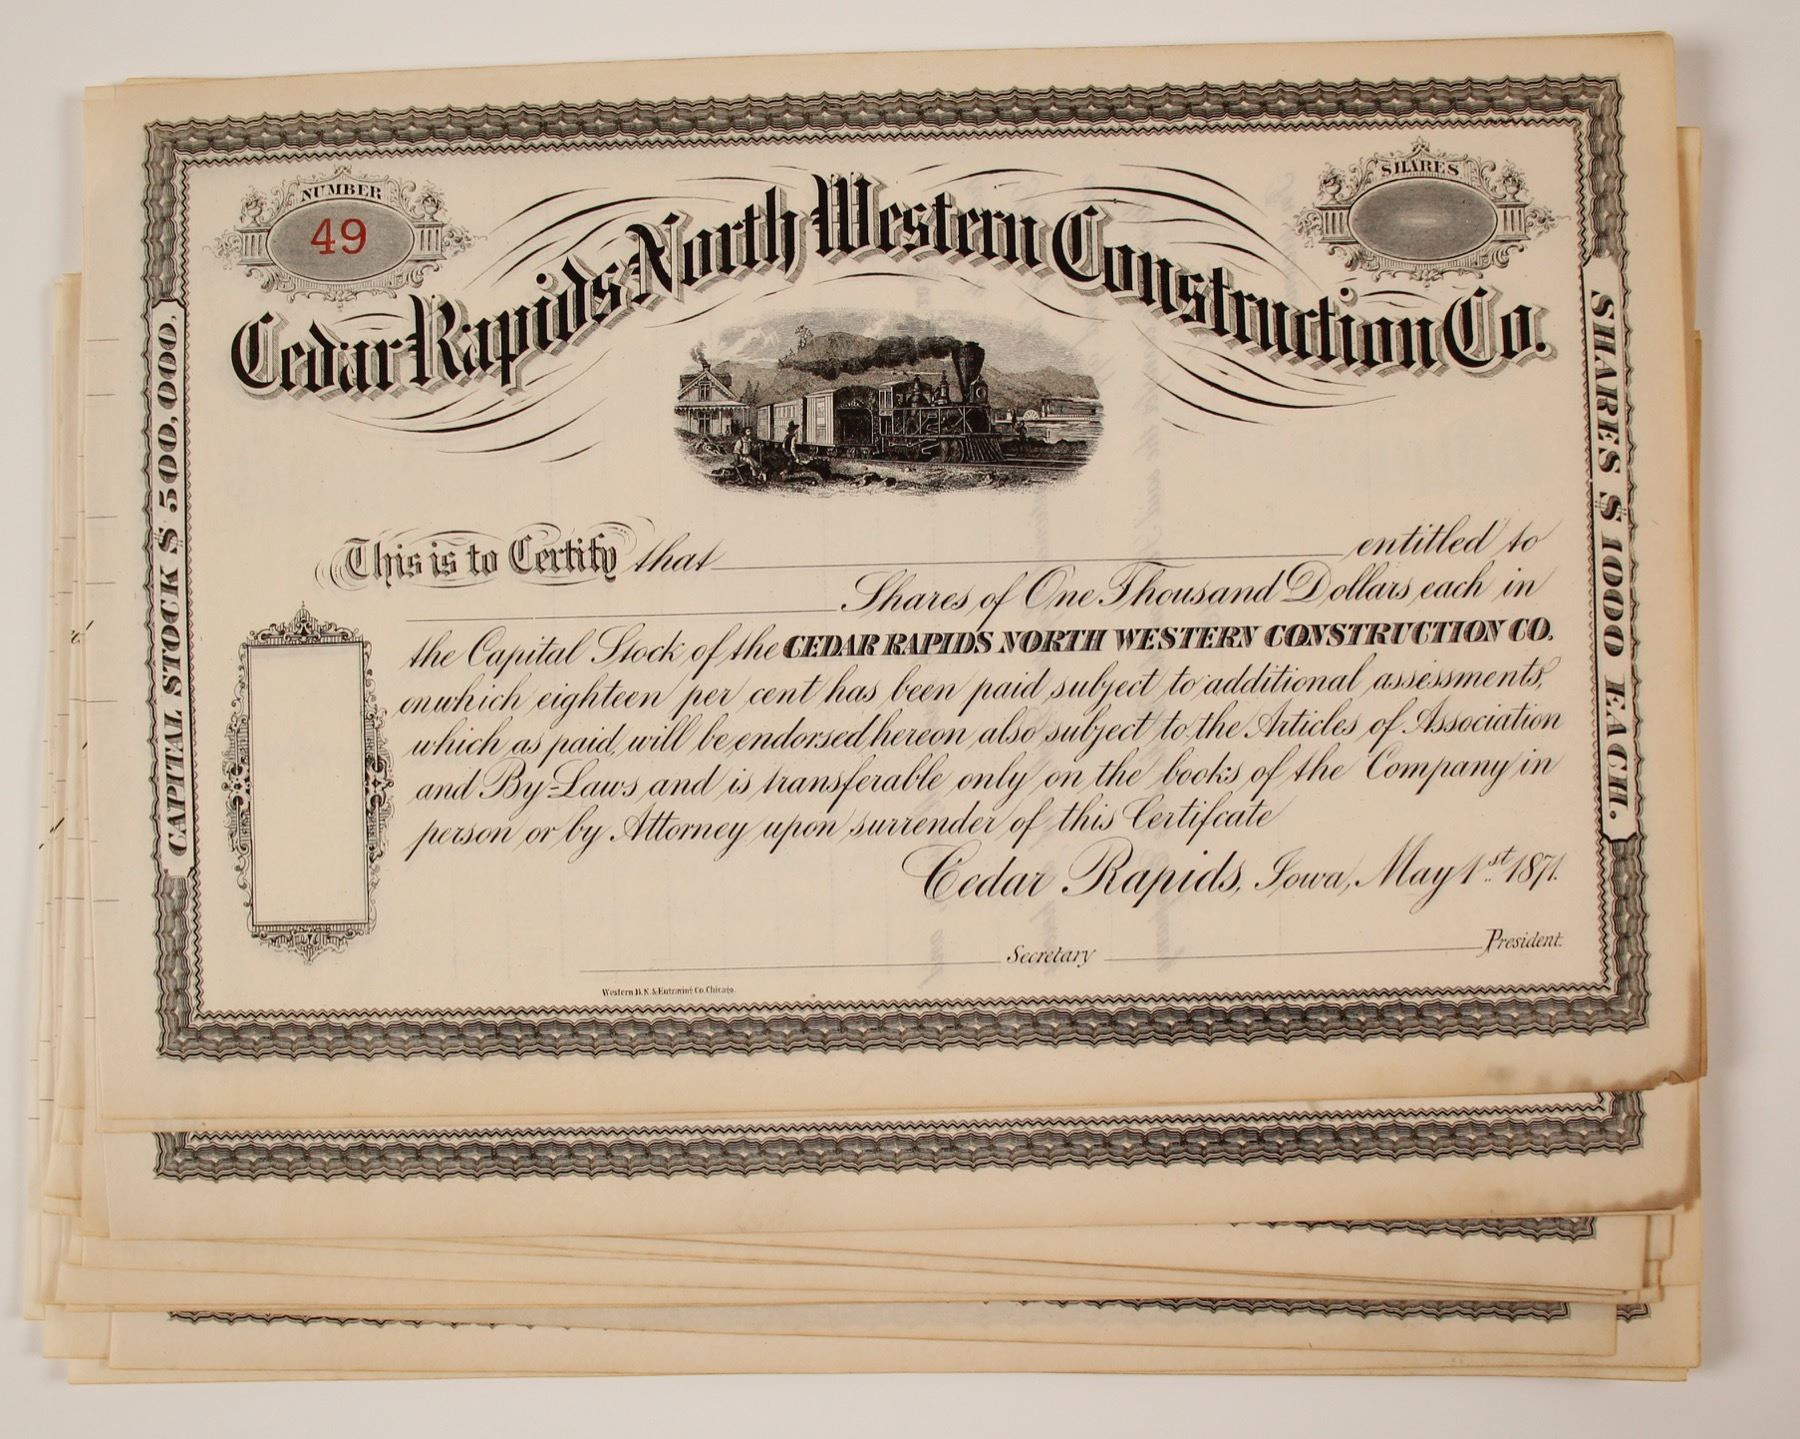 NUMBER
49
SHARES
Cedar Rapids North Western Construction Co.
CAPITAL STOCK $500,000.
SHARES $1000 EACH.
This is to Certify that entitled to
Shares of One Thousand Dollars each in
the Capital Stock of the CEDAR RAPIDS NORTH WESTERN CONSTRUCTION CO.
on which eighteen per cent has been paid subject to additional assessments,
which as paid, will be endorsed hereon also subject to the Articles of Association
and By-Laws and is transferable only on the books of the Company in
person or by Attorney upon surrender of this Certifcate
Cedar Rapids, Iowa, May 1st 1871.
Secretary President.
Western B.N. & Engraving Co. Chicago.